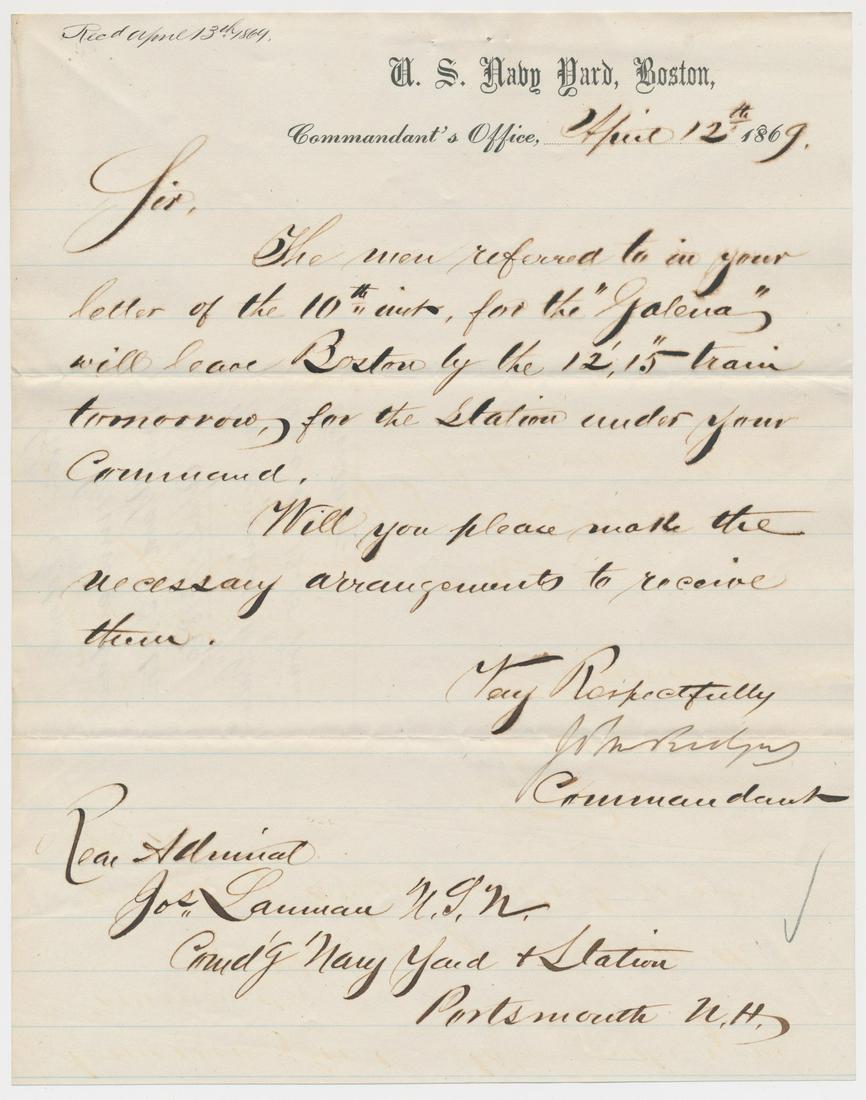 Rec'd April 13th 1869.
U. S. Navy Yard, Boston,
Commandant's Office, April 12th 1869.
Sir,
The men referred to in your
letter of the 10th inst, for the "Galena"
will leave Boston by the 12', 15" train
tomorrow, for the Station under your
Command.
Will you please make the
necessary arrangements to receive
them.
Very Respectfully
John Rodgers
Commandant
Rear Admiral
Jos. Lanman U.S.N.
Comd'g Navy Yard & Station
Portsmouth N.H.